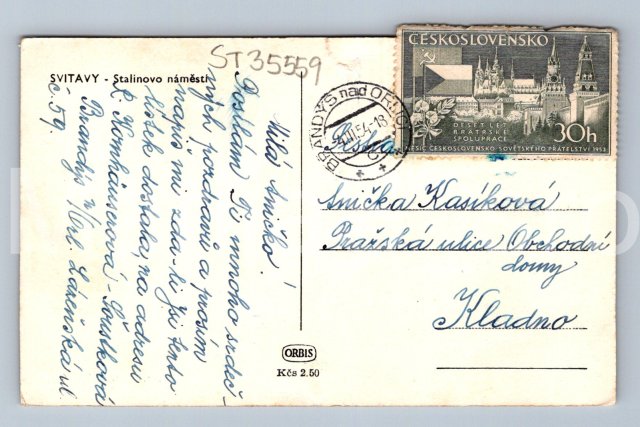 SVITAVY - Stalinovo náměstí
ST35559
Milá Aničko!
Posílám Ti mnoho srdeč-
ných pozdravů a prosím
napiš mi zda-li jsi tento
lístek dostala, na adresu
Brandýs n/Orl. Lázeňská ul.
č. 59.
ORBIS
Kčs 2.50
BRANDÝS nad ORLICÍ
ČESKOSLOVENSKO
DESET LET
BRATRSKÉ
SPOLUPRÁCE
30h
MĚSÍC ČESKOSLOVENSKO-SOVĚTSKÉHO PŘÁTELSTVÍ 1953
Anička Kasíková
Pražská ulice Obchodní
domy
Kladno